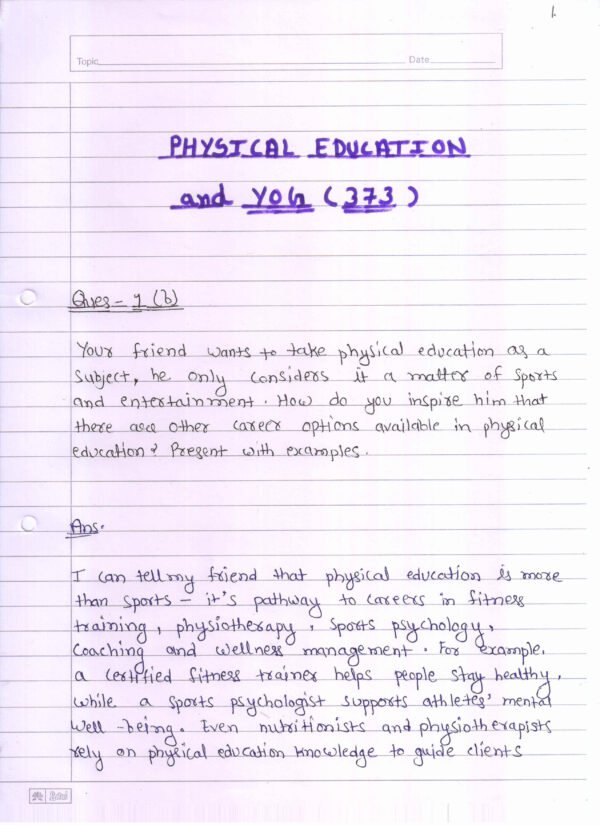 1
Topic Date
PHYSICAL EDUCATION
and YOG (373)
Ques - 1 (b)
Your friend wants to take physical education as a
Subject, he only considers it a matter of sports
and entertainment. How do you inspire him that
there are other career options available in physical
education? Present with examples.
Ans.
I can tell my friend that physical education is more
than sports - it's pathway to careers in fitness
training, physiotherapy, sports psychology,
coaching and wellness management. For example.
a certified fitness trainer helps people stay healthy,
while a sports psychologist supports athletes' mental
well-being. Even nutritionists and physiotherapists
rely on physical education knowledge to guide clients